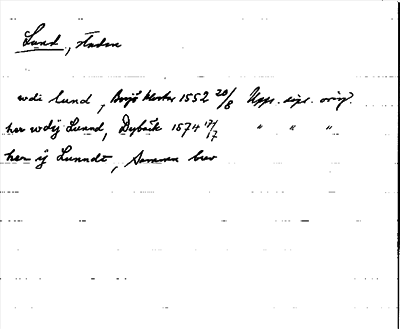 Lund, staden
udi lund, Börjö kloster 1552 20/8 Upps. dipl. orig.
her wdÿ Lund, Dybäck 1574 17/7 " " "
her ÿ Lunndt, Samma brev